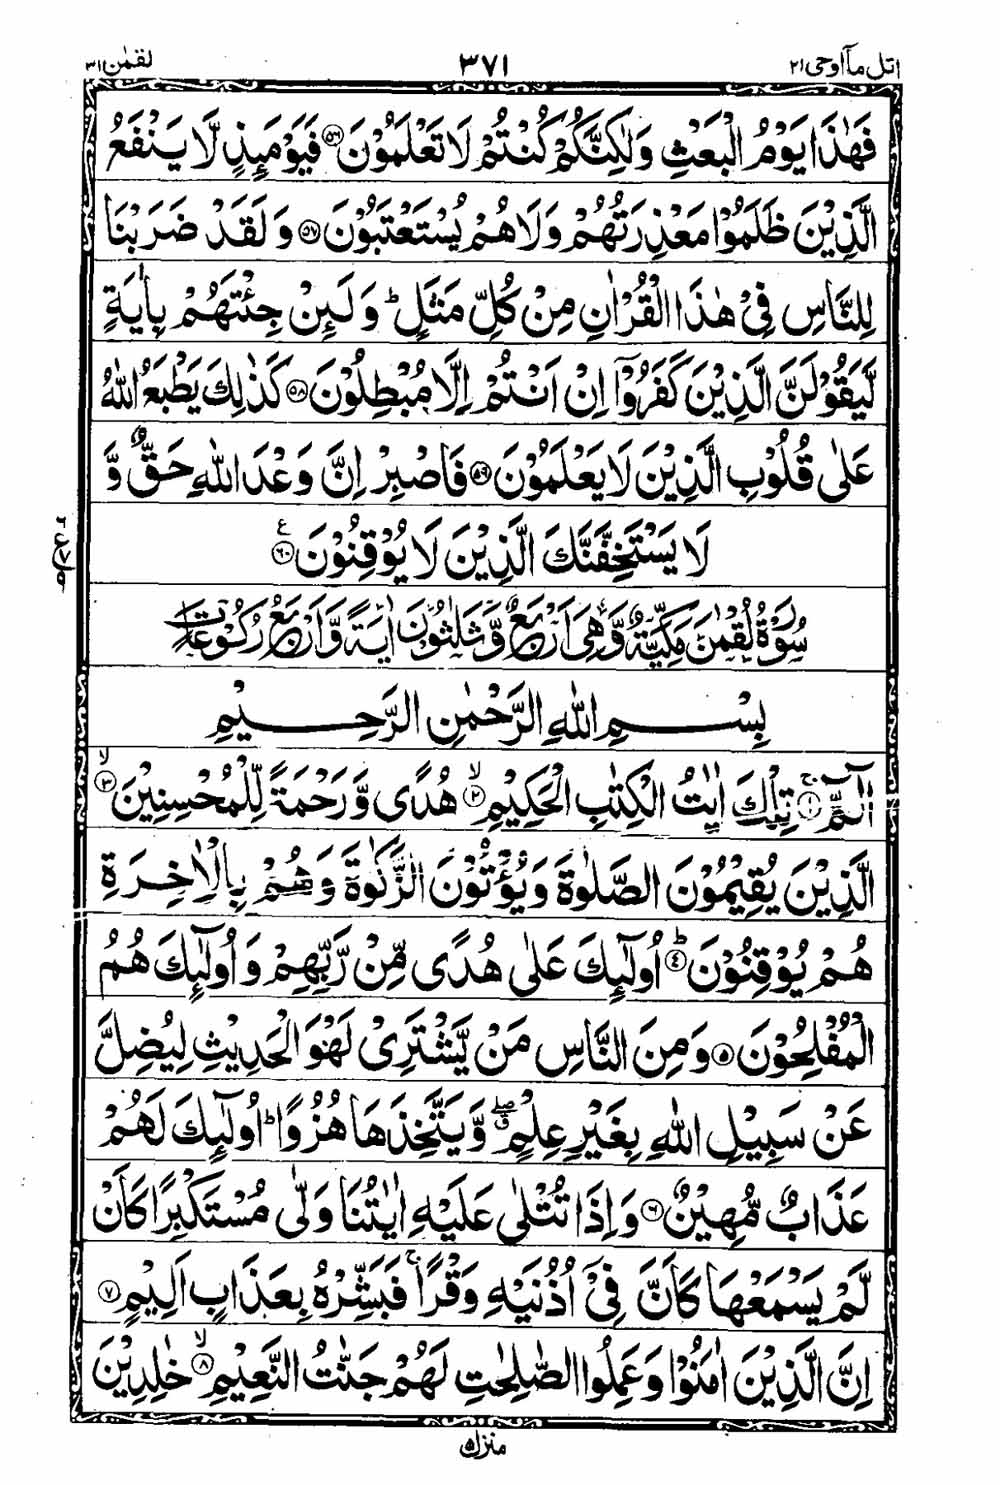 اتل مآ اوحی ٢١ ٣٧١ لقمٰن ٣١
فَهٰذَا يَوْمُ الْبَعْثِ وَلٰكِنَّكُمْ كُنْتُمْ لَا تَعْلَمُوْنَ ۝٥٦ فَيَوْمَئِذٍ لَّا يَنْفَعُ
الَّذِيْنَ ظَلَمُوْا مَعْذِرَتُهُمْ وَلَا هُمْ يُسْتَعْتَبُوْنَ ۝٥٧ وَلَقَدْ ضَرَبْنَا
لِلنَّاسِ فِيْ هٰذَا الْقُرْاٰنِ مِنْ كُلِّ مَثَلٍ ؕ وَلَئِنْ جِئْتَهُمْ بِاٰيَةٍ
لَّيَقُوْلَنَّ الَّذِيْنَ كَفَرُوْۤا اِنْ اَنْتُمْ اِلَّا مُبْطِلُوْنَ ۝٥٨ كَذٰلِكَ يَطْبَعُ اللّٰهُ
عَلٰى قُلُوْبِ الَّذِيْنَ لَا يَعْلَمُوْنَ ۝٥٩ فَاصْبِرْ اِنَّ وَعْدَ اللّٰهِ حَقٌّ وَّ
لَا يَسْتَخِفَّنَّكَ الَّذِيْنَ لَا يُوْقِنُوْنَ ۝٦٠ ع
سُوْرَةُ لُقْمٰنَ مَكِّيَّةٌ وَّهِيَ اَرْبَعٌ وَّثَلٰثُوْنَ اٰيَةً وَّاَرْبَعُ رُكُوْعَاتٍ
بِسْمِ اللّٰهِ الرَّحْمٰنِ الرَّحِيْمِ
الٓمّٓ ۝١ۚ تِلْكَ اٰيٰتُ الْكِتٰبِ الْحَكِيْمِ ۝٢ۙ هُدًى وَّرَحْمَةً لِّلْمُحْسِنِيْنَ ۝٣ۙ
الَّذِيْنَ يُقِيْمُوْنَ الصَّلٰوةَ وَيُؤْتُوْنَ الزَّكٰوةَ وَهُمْ بِالْاٰخِرَةِ
هُمْ يُوْقِنُوْنَ ۝٤ؕ اُولٰٓئِكَ عَلٰى هُدًى مِّنْ رَّبِّهِمْ وَاُولٰٓئِكَ هُمُ
الْمُفْلِحُوْنَ ۝٥ وَمِنَ النَّاسِ مَنْ يَّشْتَرِيْ لَهْوَ الْحَدِيْثِ لِيُضِلَّ
عَنْ سَبِيْلِ اللّٰهِ بِغَيْرِ عِلْمٍ ۖ وَّيَتَّخِذَهَا هُزُوًا ؕ اُولٰٓئِكَ لَهُمْ
عَذَابٌ مُّهِيْنٌ ۝٦ وَاِذَا تُتْلٰى عَلَيْهِ اٰيٰتُنَا وَلّٰى مُسْتَكْبِرًا كَاَنْ
لَّمْ يَسْمَعْهَا كَاَنَّ فِيْۤ اُذُنَيْهِ وَقْرًا ۚ فَبَشِّرْهُ بِعَذَابٍ اَلِيْمٍ ۝٧
اِنَّ الَّذِيْنَ اٰمَنُوْا وَعَمِلُوا الصّٰلِحٰتِ لَهُمْ جَنّٰتُ النَّعِيْمِ ۝٨ۙ خٰلِدِيْنَ
منزل ٥